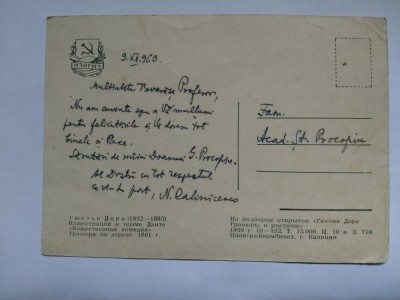 ИЗОГИЗ
9.XI.960.
Multstimate Tovarășe Profesor,
Nu am cuvinte spre a Vă mulțumi
pentru felicitările și Vă doresc tot
binele și Pace.
Sărutări de mâini Doamnei G. Procopiu.
Al Dvstră cu tot respectul
ce vă port, N. Calinicenco
Fam.
Acad. Șt. Procopiu
Гюстав Доре (1832—1883)
Иллюстрация к поэме Данте
«Божественная комедия»
Гравюра на дереве. 1861 г.
Из подборки открыток «Гюстав Доре
Гравюры и рисунки»
10—102. Т. 15 000. Ц. 10 к. З. 716
Полиграфкомбинат, г. Калинин